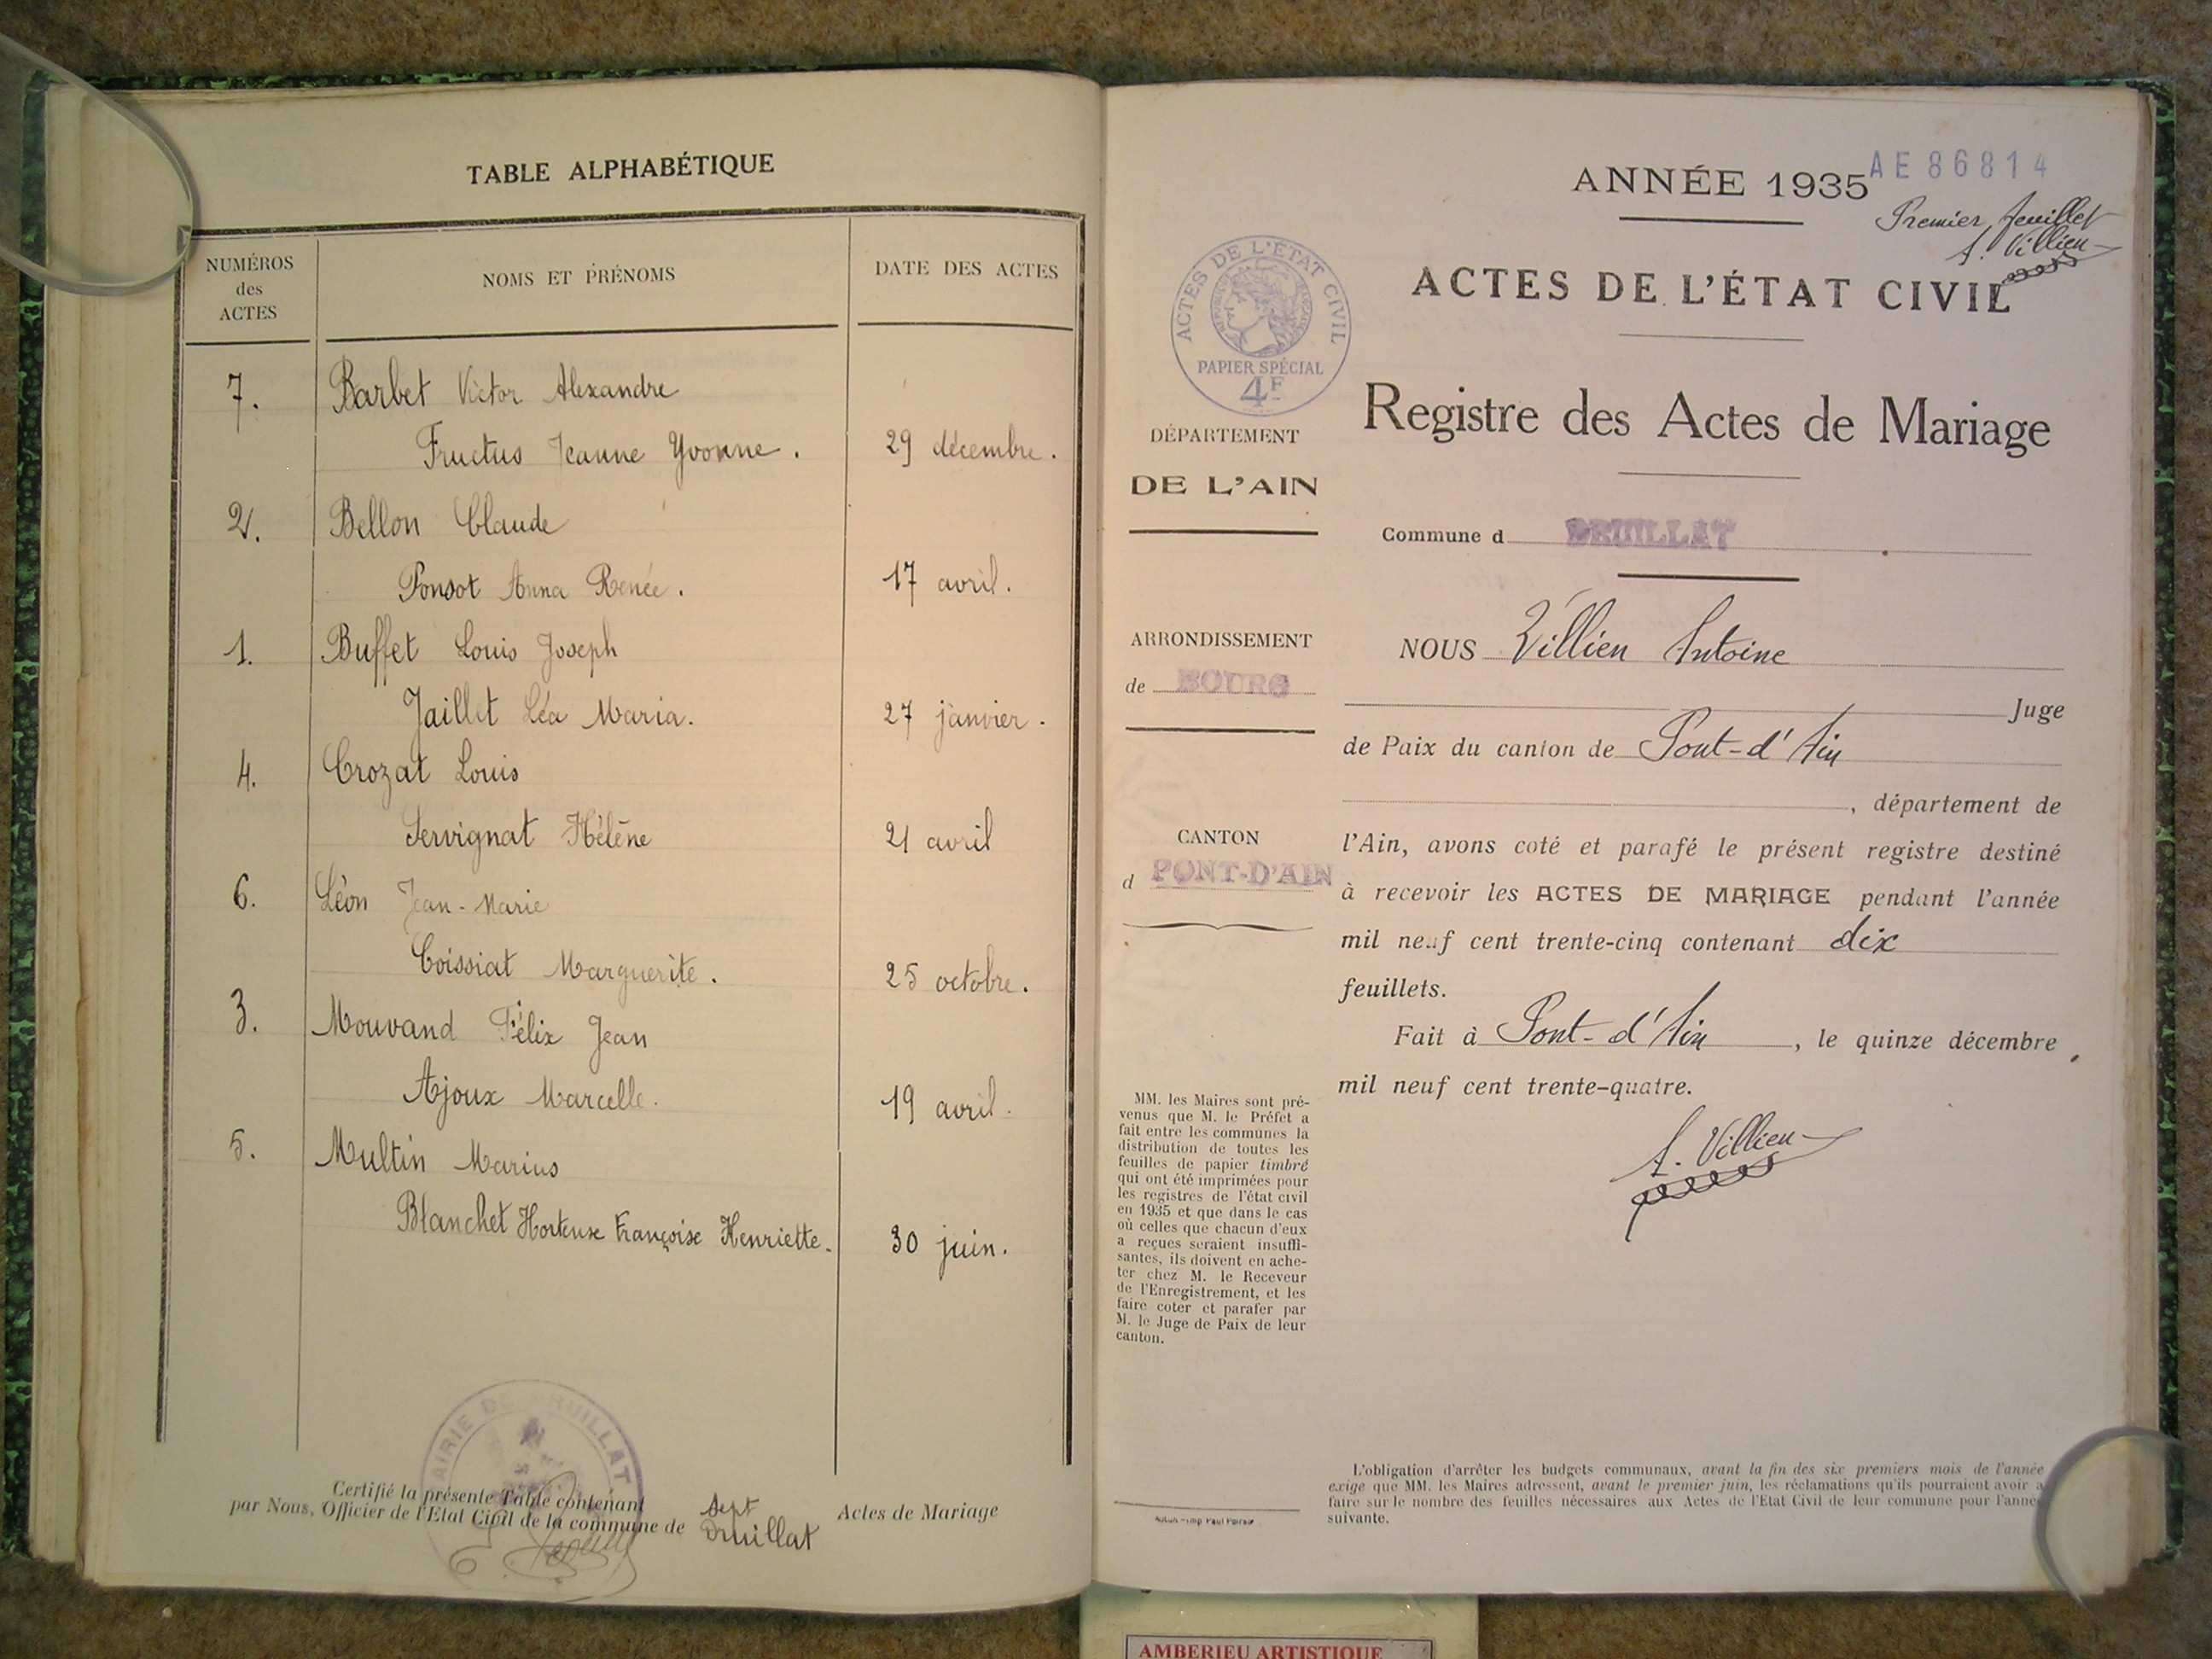 TABLE ALPHABÉTIQUE
NUMÉROS
des
ACTES
NOMS ET PRÉNOMS
DATE DES ACTES
7. Barbet Victor Alexandre
Fructus Jeanne Yvonne. 29 décembre.
2. Bellon Claude
Ponsot Anna Renée. 17 avril.
1. Buffet Louis Joseph
Jaillet Léa Maria. 27 janvier.
4. Crozat Louis
Servignat Hélène 21 avril
6. Léon Jean-Marie
Coissiat Marguerite. 25 octobre.
3. Mouvand Félix Jean
Ajoux Marcelle. 19 avril.
5. Multin Marius
Blanchet Hortense Françoise Henriette. 30 juin.
MAIRIE DE DRUILLAT
Certifié la présente Table contenant sept Actes de Mariage
par Nous, Officier de l'Etat Civil de la commune de Druillat
ANNÉE 1935
AE86814
Premier feuillet
A. Villien
ACTES DE L'ÉTAT CIVIL
ACTES DE L'ÉTAT CIVIL
PAPIER SPÉCIAL
4F
Registre des Actes de Mariage
DÉPARTEMENT
DE L'AIN
Commune d DRUILLAT
ARRONDISSEMENT
de BOURG
CANTON
d PONT-D'AIN
NOUS Villien Antoine
Juge
de Paix du canton de Pont-d'Ain
, département de
l'Ain, avons coté et parafé le présent registre destiné
à recevoir les ACTES DE MARIAGE pendant l'année
mil neuf cent trente-cinq contenant dix
feuillets.
Fait à Pont-d'Ain, le quinze décembre
mil neuf cent trente-quatre.
A. Villien
MM. les Maires sont pré-
venus que M. le Préfet a
fait entre les communes la
distribution de toutes les
feuilles de papier timbré
qui ont été imprimées pour
les registres de l'état civil
en 1935 et que dans le cas
où celles que chacun d'eux
a reçues seraient insuffi-
santes, ils doivent en ache-
ter chez M. le Receveur
de l'Enregistrement, et les
faire coter et parafer par
M. le Juge de Paix de leur
canton.
L'obligation d'arrêter les budgets communaux, avant la fin des six premiers mois de l'année
exige que MM. les Maires adressent, avant le premier juin, les réclamations qu'ils pourraient avoir a
faire sur le nombre des feuilles nécessaires aux Actes de l'Etat Civil de leur commune pour l'anné
suivante.
AMBERIEU ARTISTIQUE